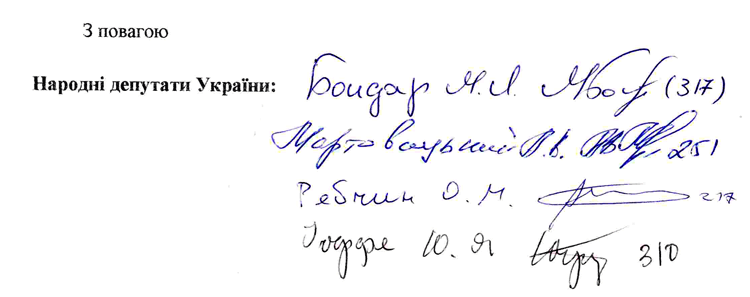 З повагою
Народні депутати України: Бондар М.Л. (317)
Мартовицький А.В. 251
Ревчин О.М. 217
Іоффе Ю.Я 310